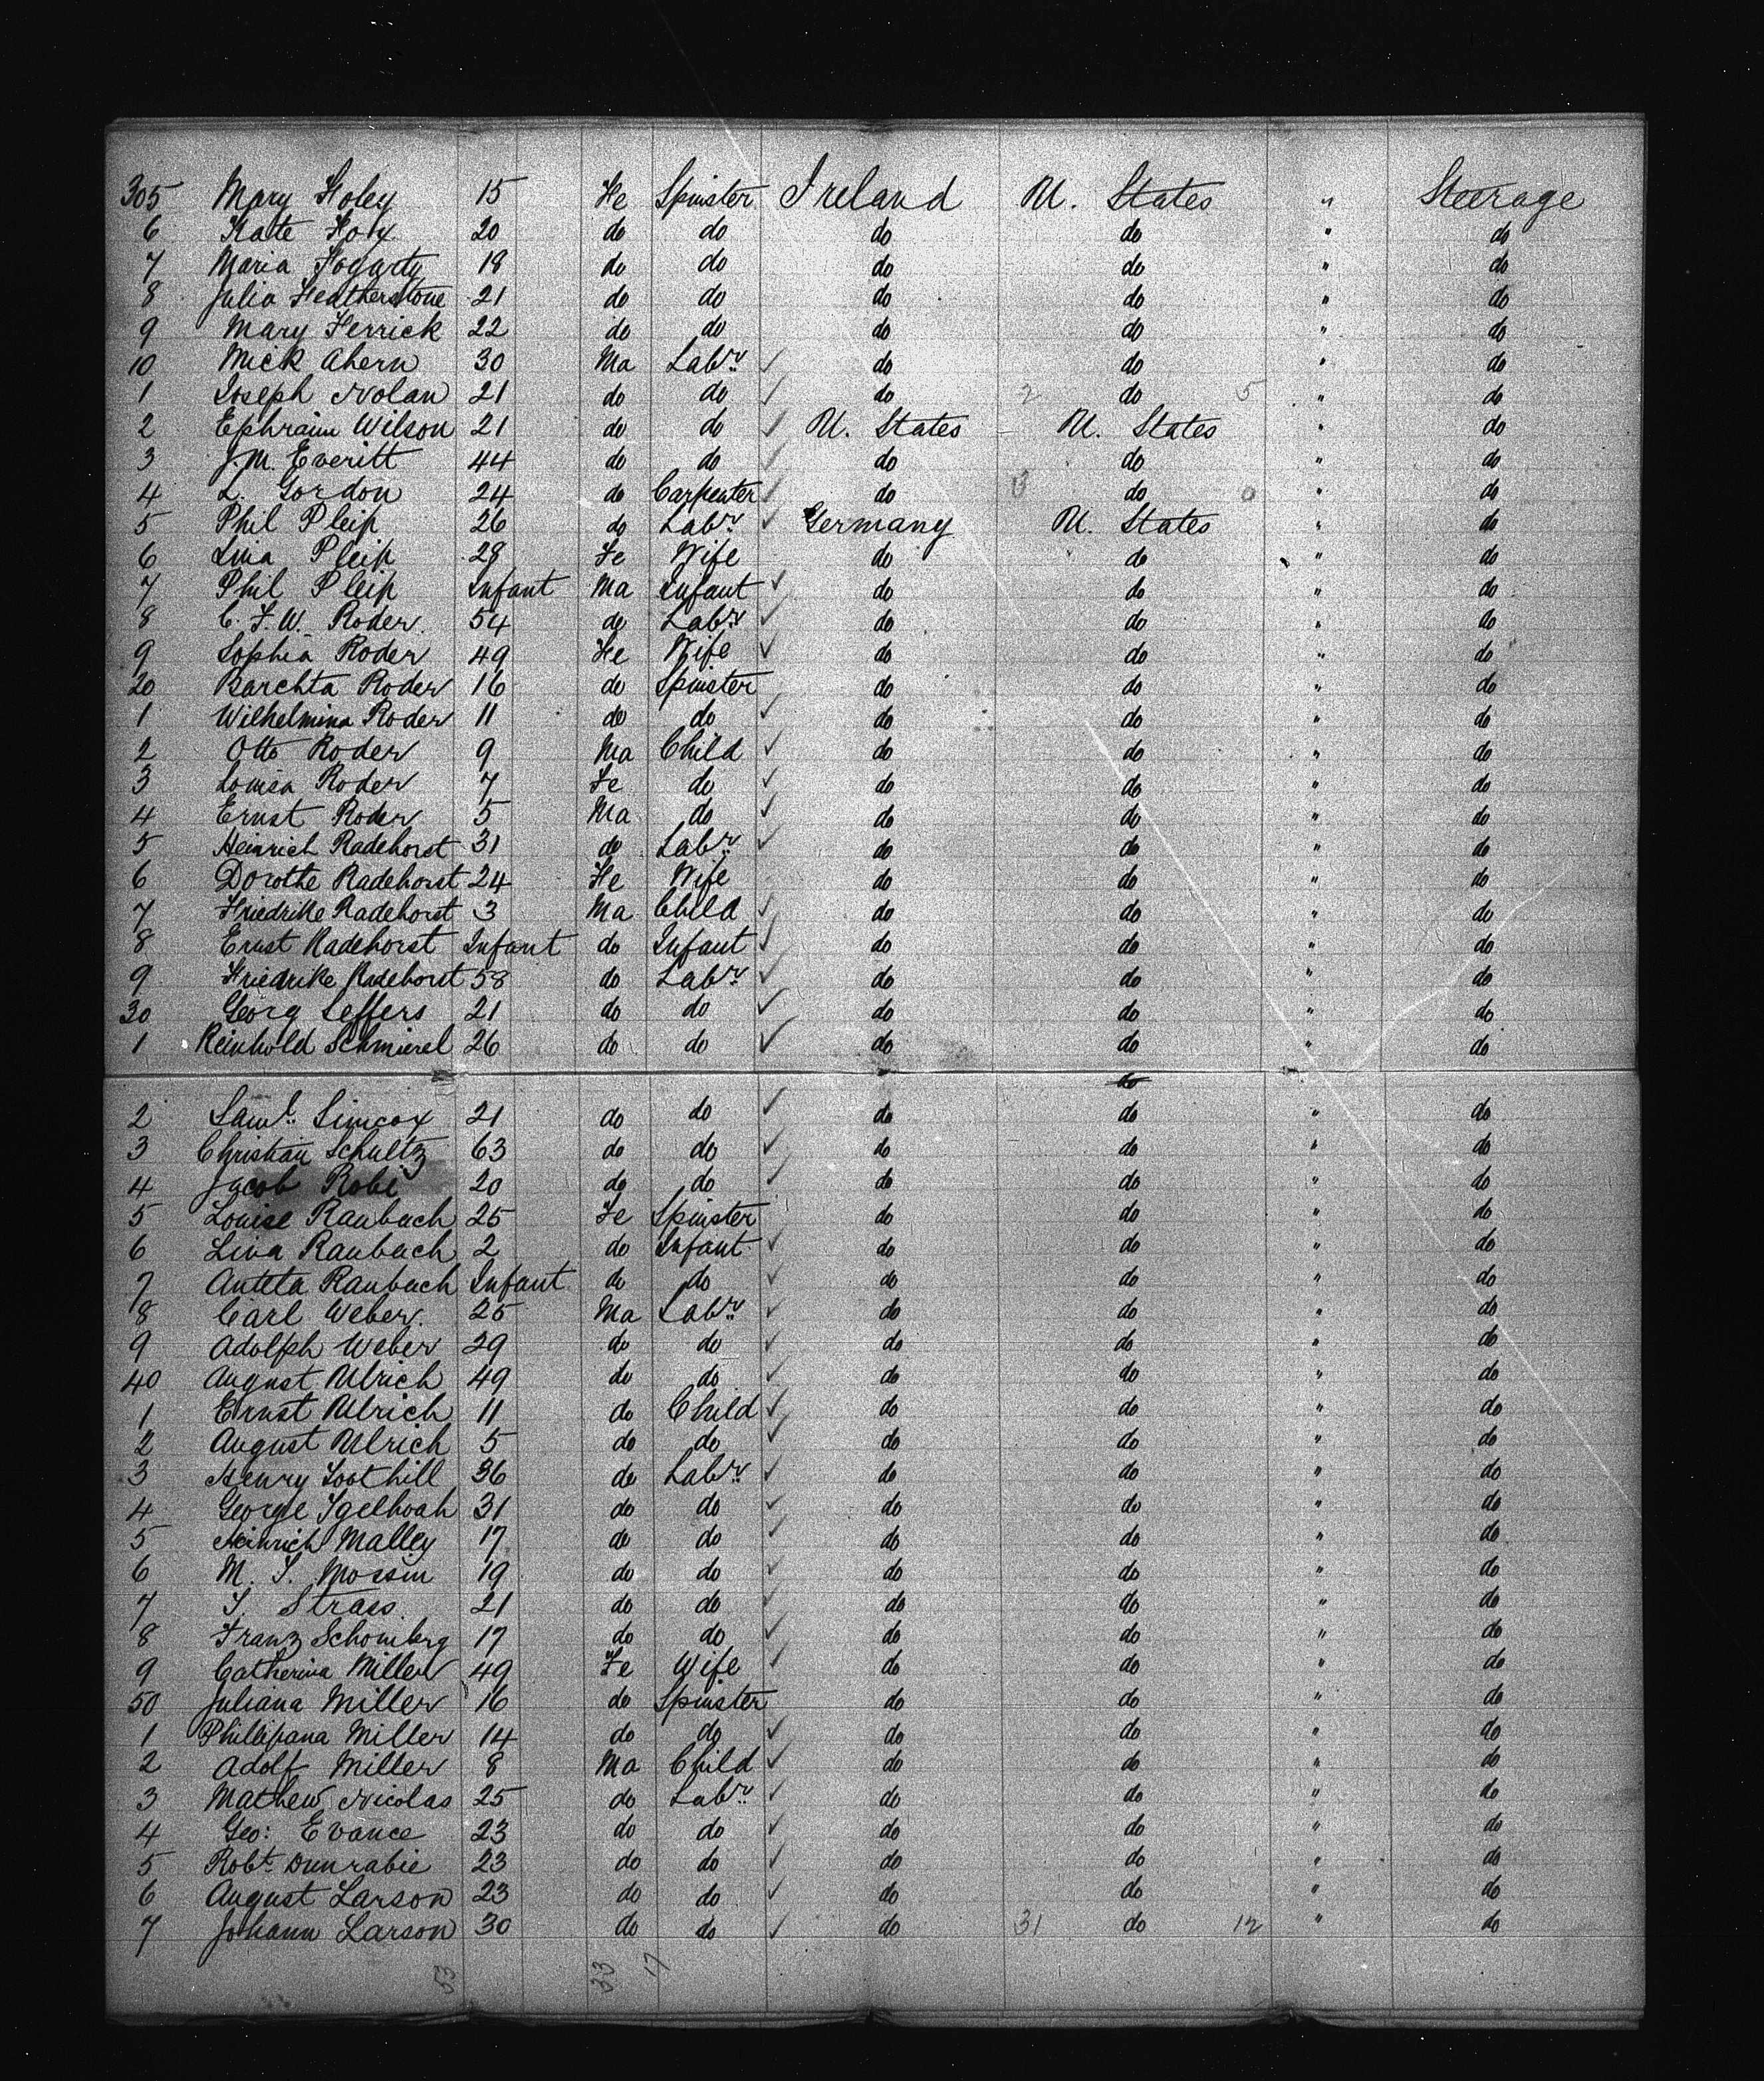 305 Mary Foley 15 Fe Spinster Ireland U. States " Steerage
6 Kate Fox 20 do do do do " do
7 Maria Fogarty 18 do do do do " do
8 Julia Featherstone 21 do do do do " do
9 Mary Ferrick 22 do do do do " do
10 Mick Ahern 30 Ma Labr ✓ do do " do
1 Joseph Nolan 21 do do ✓ do 2 do 5 " do
2 Ephraim Wilson 21 do do ✓ U. States U. States " do
3 J. M. Everitt 44 do do ✓ do do " do
4 L. Gordon 24 do Carpenter ✓ do 3 do 0 " do
5 Phil Pleip 26 do Labr ✓ Germany U. States " do
6 Lina Pleip 28 Fe Wife do do " do
7 Phil Pleip Infant Ma Infant ✓ do do " do
8 C. F. W. Roder 54 do Labr ✓ do do " do
9 Sophia Roder 49 Fe Wife ✓ do do " do
20 Barchta Roder 16 do Spinster do do " do
1 Wilhelmina Roder 11 do do ✓ do do " do
2 Otto Roder 9 Ma Child ✓ do do " do
3 Louisa Roder 7 Fe do ✓ do do " do
4 Ernst Roder 5 Ma do ✓ do do " do
5 Heinrich Radehorst 31 do Labr ✓ do do " do
6 Dorothe Radehorst 24 Fe Wife do do " do
7 Friedrike Radehorst 3 Ma Child ✓ do do " do
8 Ernst Radehorst Infant do Infant ✓ do do " do
9 Friedrike Radehorst 58 do Labr ✓ do do " do
30 Georg Leffers 21 do do ✓ do do " do
1 Reinhold Schmierel 26 do do ✓ do do " do
do
2 Saml. Simcox 21 do do ✓ do do " do
3 Christian Schultz 63 do do ✓ do do " do
4 Jacob Robi 20 do do ✓ do do " do
5 Louise Raubach 25 Fe Spinster do do " do
6 Lina Raubach 2 do Infant ✓ do do " do
7 Antita Raubach Infant do do ✓ do do " do
8 Carl Weber 25 Ma Labr ✓ do do " do
9 Adolph Weber 29 do do ✓ do do " do
40 August Ulrich 49 do do ✓ do do " do
1 Ernst Ulrich 11 do Child ✓ do do " do
2 August Ulrich 5 do do ✓ do do " do
3 Henry Loothill 36 do Labr ✓ do do " do
4 George Igelhoah 31 do do ✓ do do " do
5 Heinrich Malley 17 do do ✓ do do " do
6 M. S. Mossin 19 do do ✓ do do " do
7 S. Strass 21 do do ✓ do do " do
8 Franz Schomberg 17 do do ✓ do do " do
9 Catherina Miller 49 Fe Wife ✓ do do " do
50 Juliana Miller 16 do Spinster do do " do
1 Phillipana Miller 14 do do ✓ do do " do
2 Adolf Miller 8 Ma Child ✓ do do " do
3 Mathew Nicolas 25 do Labr ✓ do do " do
4 Geo: Evance 23 do do ✓ do do " do
5 Robt Dunrabie 23 do do ✓ do do " do
6 August Larson 23 do do ✓ do do " do
7 Johann Larson 30 do do ✓ do 31 do 12 " do
53 33 17